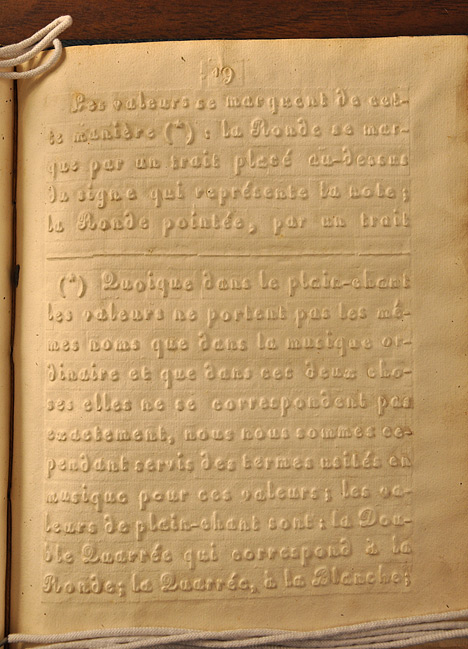 19
Les valeurs se marquent de cet-
te manière (*) : la Ronde se mar-
que par un trait placé au-dessus
du signe qui représente la note;
la Ronde pointée, par un trait
(*) Quoique dans le plain-chant
les valeurs ne portent pas les mê-
mes noms que dans la musique or-
dinaire et que dans ces deux cho-
ses elles ne se correspondent pas
exactement, nous nous sommes ce-
pendant servis des termes usités en
musique pour ces valeurs; les va-
leurs de plain-chant sont: la Dou-
ble Quarrée qui correspond à la
Ronde; la Quarrée, à la Blanche;